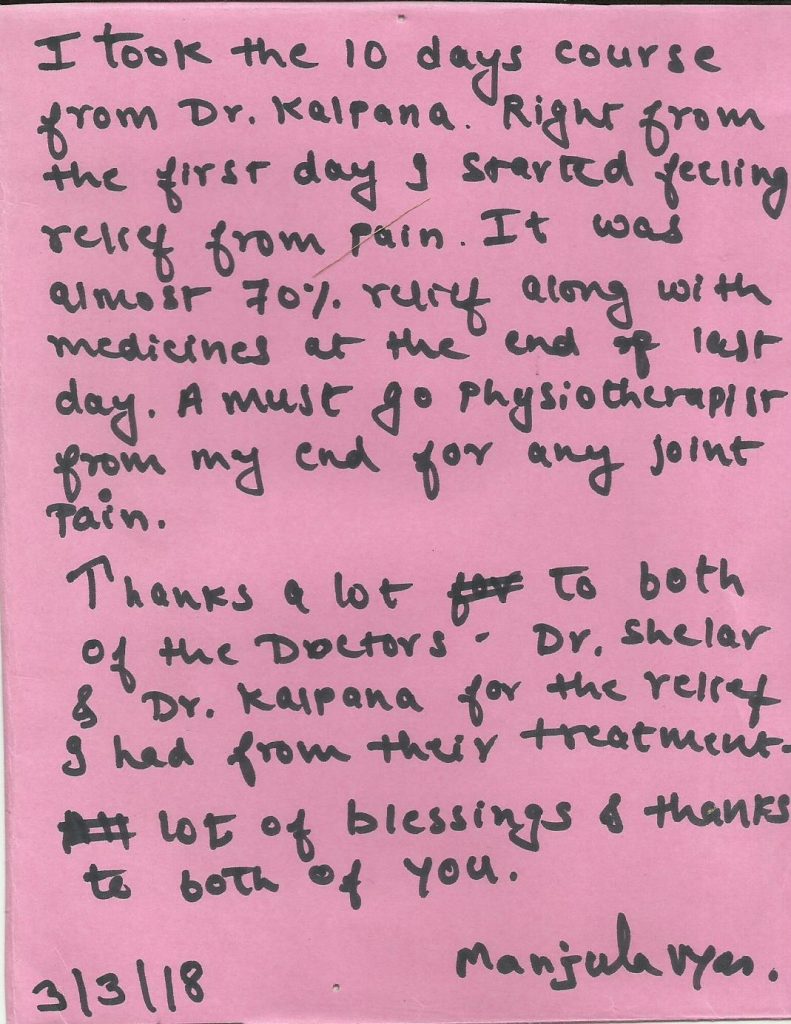 I took the 10 days course
from Dr. Kalpana. Right from
the first day I started feeling
relief from pain. It was
almost 70% relief along with
medicines at the end of last
day. A must go Physiotherapist
from my end for any joint
Pain.
Thanks a lot to both
of the Doctors - Dr. Shelar
& Dr. Kalpana for the relief
I had from their treatment.
lot of blessings & thanks
to both of you.
Manjula Vyas.
3/3/18